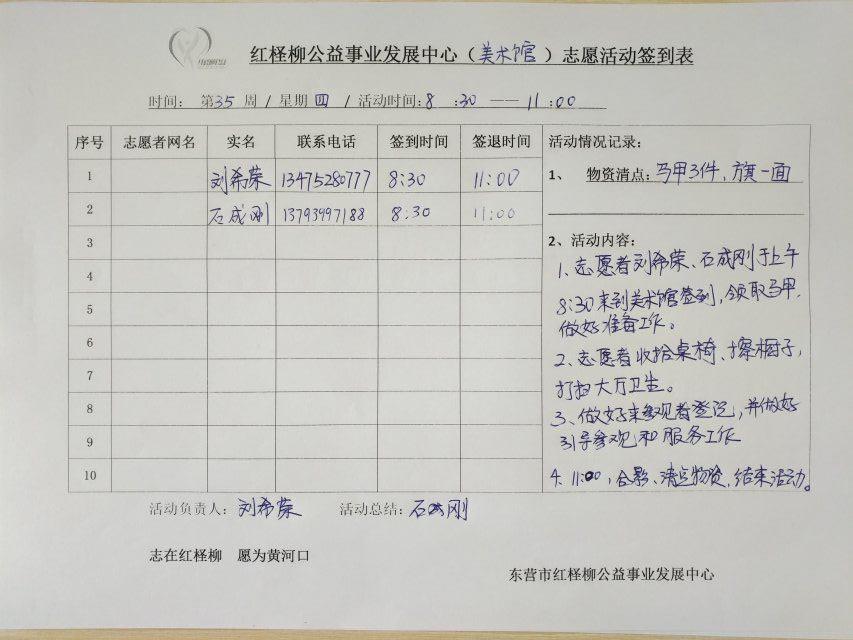 红柽柳公益事业发展中心（美术馆）志愿活动签到表
时间： 第35 周 / 星期 四 / 活动时间：8 ：30 —— 11 ：00
序号 志愿者网名 实名 联系电话 签到时间 签退时间
1 刘希荣 13475280777 8:30 11:00
2 石成刚 13793497188 8:30 11:00
3
4
5
6
7
8
9
10
活动情况记录：
1、 物资清点：马甲3件，旗一面
2、活动内容：
1、志愿者刘希荣、石成刚于上午
8:30来到美术馆签到，领取马甲，
做好准备工作。
2、志愿者收拾桌椅、擦柜子，
打扫大厅卫生。
3、做好来参观者登记，并做好
引导参观和服务工作
4、11:00，合影、清点物资，结束活动。
活动负责人：刘希荣 活动总结：石成刚
志在红柽柳 愿为黄河口
东营市红柽柳公益事业发展中心